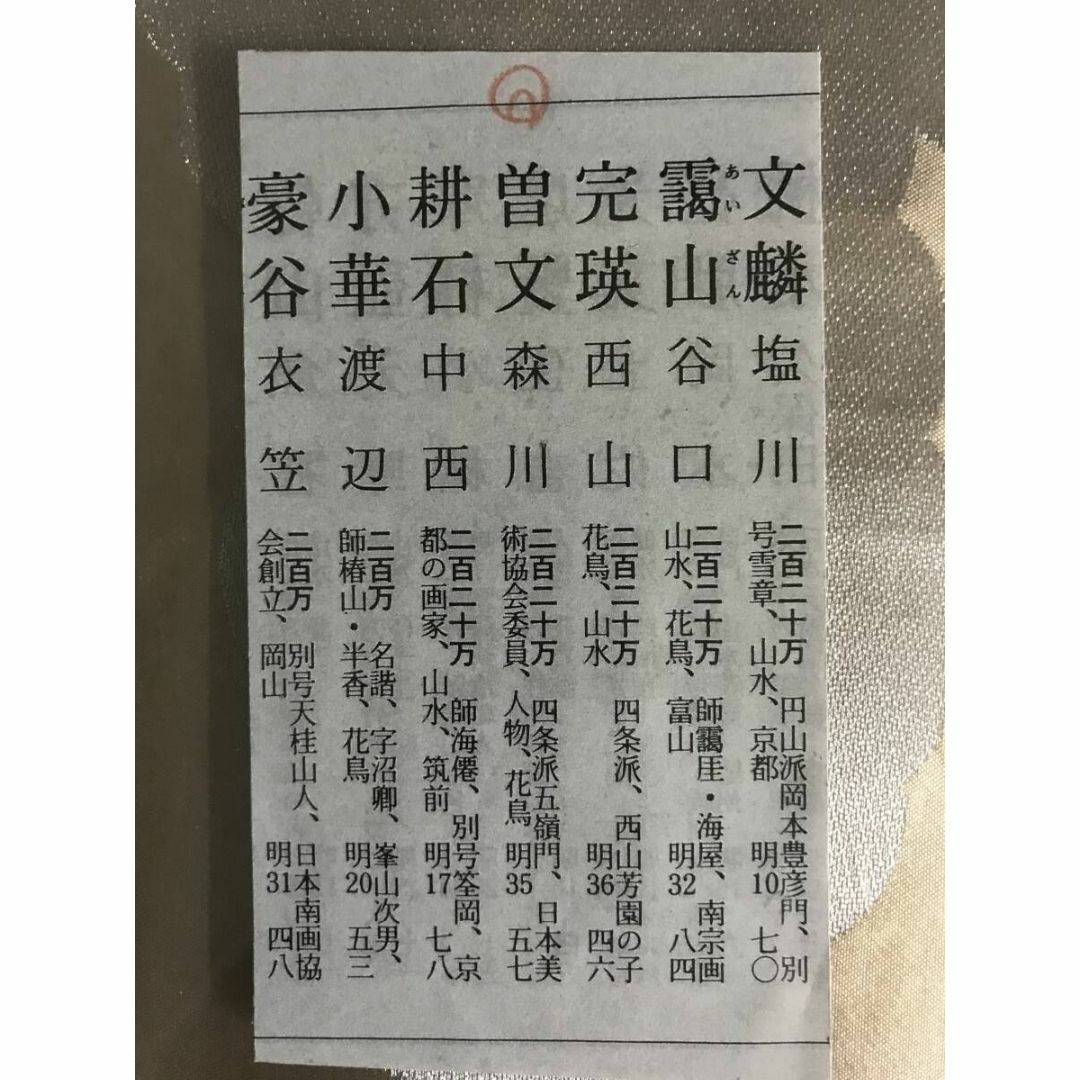 文麟 塩川 二百二十万 円山派岡本豊彦門、別
号雪章、山水、京都 明10 七〇
靄山 谷口 二百二十万 師靄厓・海屋、南宗画
あいざん
山水、花鳥、富山 明32 八四
完瑛 西山 二百二十万 四条派、西山芳園の子
花鳥、山水 明36 四六
曽文 森川 二百二十万 四条派五嶺門、日本美
術協会委員、人物、花鳥 明35 五七
耕石 中西 二百二十万 師海僊、別号筌岡、京
都の画家、山水、筑前 明17 七八
小華 渡辺 二百万 名諧、字沼卿、峯山次男、
師椿山・半香、花鳥 明20 五三
豪谷 衣笠 二百万 別号天桂山人、日本南画協
会創立、岡山 明31 四八